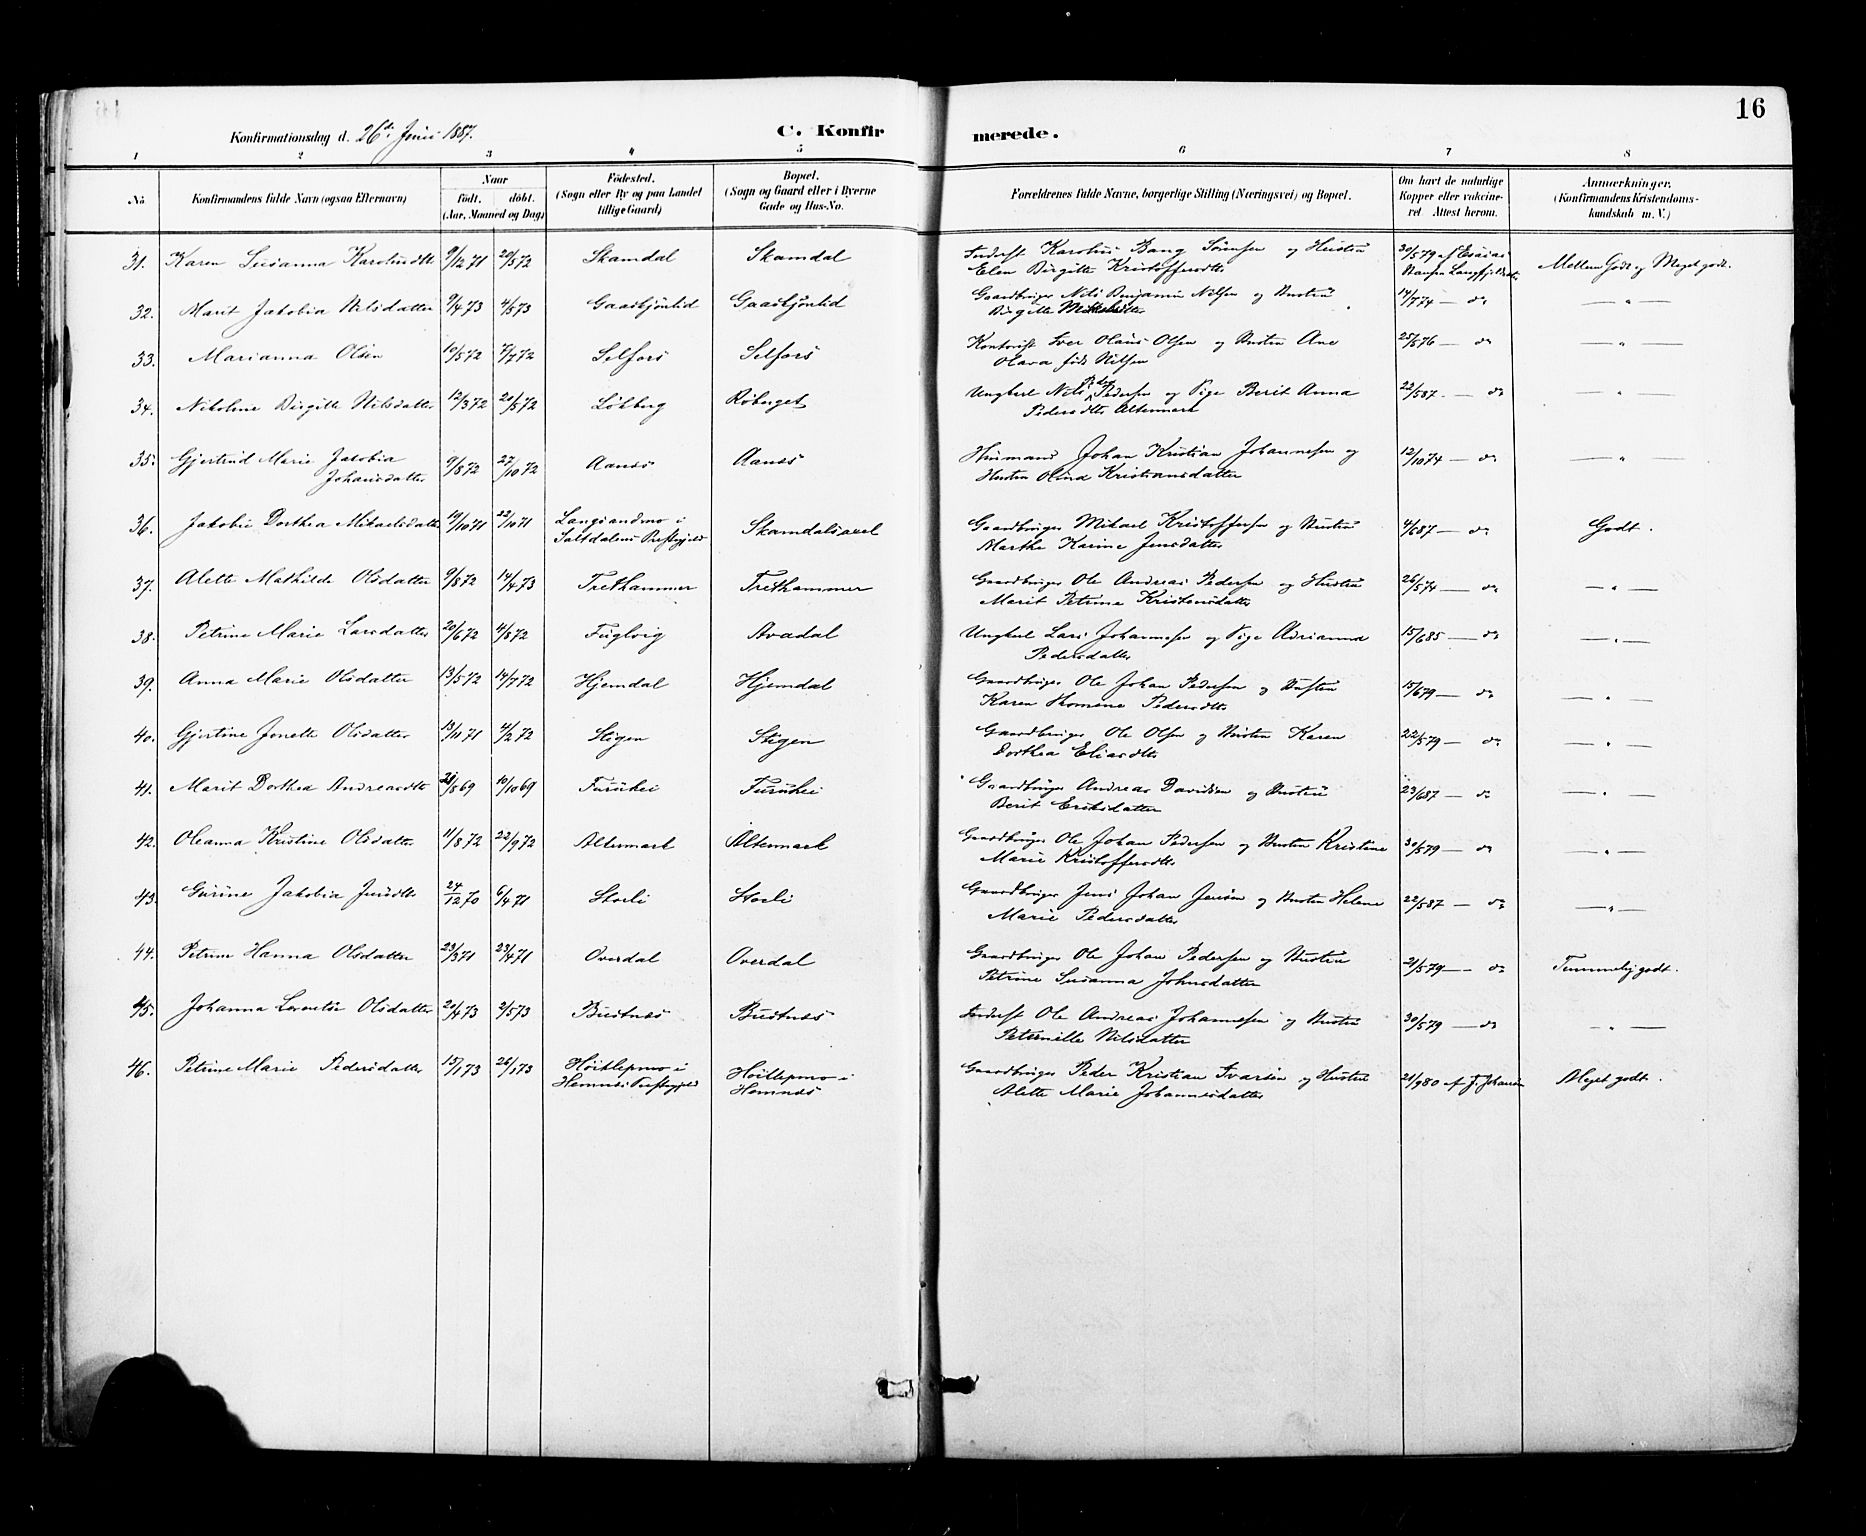 16
Konfirmationsdag d. 26de Juni 1887.
C. Konfirmerede.
1 2 3 4 5 6 7 8
No
Konfirmandens fulde Navn (ogsaa Efternavn)
Naar
født. døbt.
(Aar, Maaned og Dag)
Fødested.
(Sogn eller By og paa Landet
tillige Gaard)
Bopæl.
(Sogn og Gaard eller i Byerne
Gade og Hus-No.
Forældrenes fulde Navne, borgerlige Stilling (Næringsvei) og Bopæl.
Om havt de naturlige
Kopper eller vakcine-
ret Attest herom.
Anmærkninger.
(Konfirmandens Kristendoms-
kundskab m. V.)
31. Karen Susanna Karolusdtt. 9/12 71 20/5 72 Skamdal Skamdal Inderst Karolius Bang Sørensen og Hustru 30/5 79 af Esaias Mellem Godt og Meget godt.
Elen Birgitte Kristoffersdtt.
32. Marit Jakobia Nilsdatter 9/4 73 4/5 73 Gaasbjønlid Gaasbjønlid Gaardbruger Nils Benjamin Nilsen og Hustru 14/7 74 — do — " —
Birgitte
33. Marianna Olsen 10/5 72 7/7 72 Selfors Selfors Kontorist Iver Olaus Olsen og Hustru Ane 25/5 76 — do — " —
Olava født Nilsen
34. Nikoline Birgitte Nilsdatter 12/3 72 20/5 72 Løkberg Røberget Ungkarl Nils Peder Pedersen og Pige Berit Anna 22/5 87. — do — " —
Pedersdtr Altermark
35. Gjertrud Marie Jakobia 9/8 72 27/10 72 Aanæs Aanæs Husmand Johan Kristian Johannesen og 12/10 74 — do — " —
Johansdatter Hustru Olina Kristiansdatter
36. Jakobie Dorthea Mikaelsdatter 19/10 71 22/10 71 Langsandmo i Skamdalsaxel Gaardbruger Mikael Kristoffersen og Hustru 4/6 87 — do Godt.
Saltdalens Prestegjeld Marthe Karine Jensdatter
37. Alette Mathilde Olsdatter 9/8 72 14/4 73 Trethammer Trethammer Gaardbruger Ole Andreas Pedersen og Hustru 26/5 74 — do — " —
Marit Petrine Kristensdatter
38. Petrine Marie Larsdatter 20/6 72 4/8 72 Fuglvig Avadal Ungkarl Lars Johannesen og Pige Adrianna 15/6 85 — do — " —
Pedersdatter
39. Anna Marie Olsdatter 13/5 72 14/7 72 Hjemdal Hjemdal Gaardbruger Ole Johan Pedersen og Hustru 15/6 79 — do — " —
Karen Thomine Pedersdtr
40. Gjertine Jonette Olsdatter 13/11 71 4/2 72 Stigen Stigen Gaardbruger Ole Olsen og Hustru Karen 22/5 79 — do — " —
Dorthea Eliasdtr
41. Marit Dorthea Andreasdtr 28/8 69 10/10 69 Furuhei Furuhei Gaardbruger Andreas Davidsen og Hustru 23/6 87 — do — " —
Berit Eriksdatter
42. Oleanna Kristine Olsdatter 11/8 72 22/9 72 Altermark Altermark Gaardbruger Ole Johan Pedersen og Hustru Kristine 30/5 79 — do — " —
Marie Kristoffersdtr
43. Gurine Jakobia Jensdtr 24/12 70 6/4 71 Storli Storli Gaardbruger Jens Johan Jensen og Hustru Helene 22/5 87 — do — " —
Marie Pedersdatter
44. Petrine Hanna Olsdatter 23/3 71 23/4 71 Overdal Overdal Gaardbruger Ole Johan Pedersen og Hustru 21/5 79 — do Temmelig godt.
Petrine Susanna Johnsdatter
45. Johanna Lorentse Olsdatter 20/4 73 2/5 73 Bustnæs Bustnæs Inderst Ole Andreas Johannesen og Hustru 30/5 79 — do — " —
Peternille Nilsdatter
46. Petrine Marie Pedersdatter 15/1 73 26/1 73 Høitlepmo i Høitlepmo i Gaardbruger Peder Kristian Ivarsen og Hustru 21/9 80 af J. Johansen Meget godt.
Hemnes Prestegjeld Hemnæs Alette Marie Johannesdatter